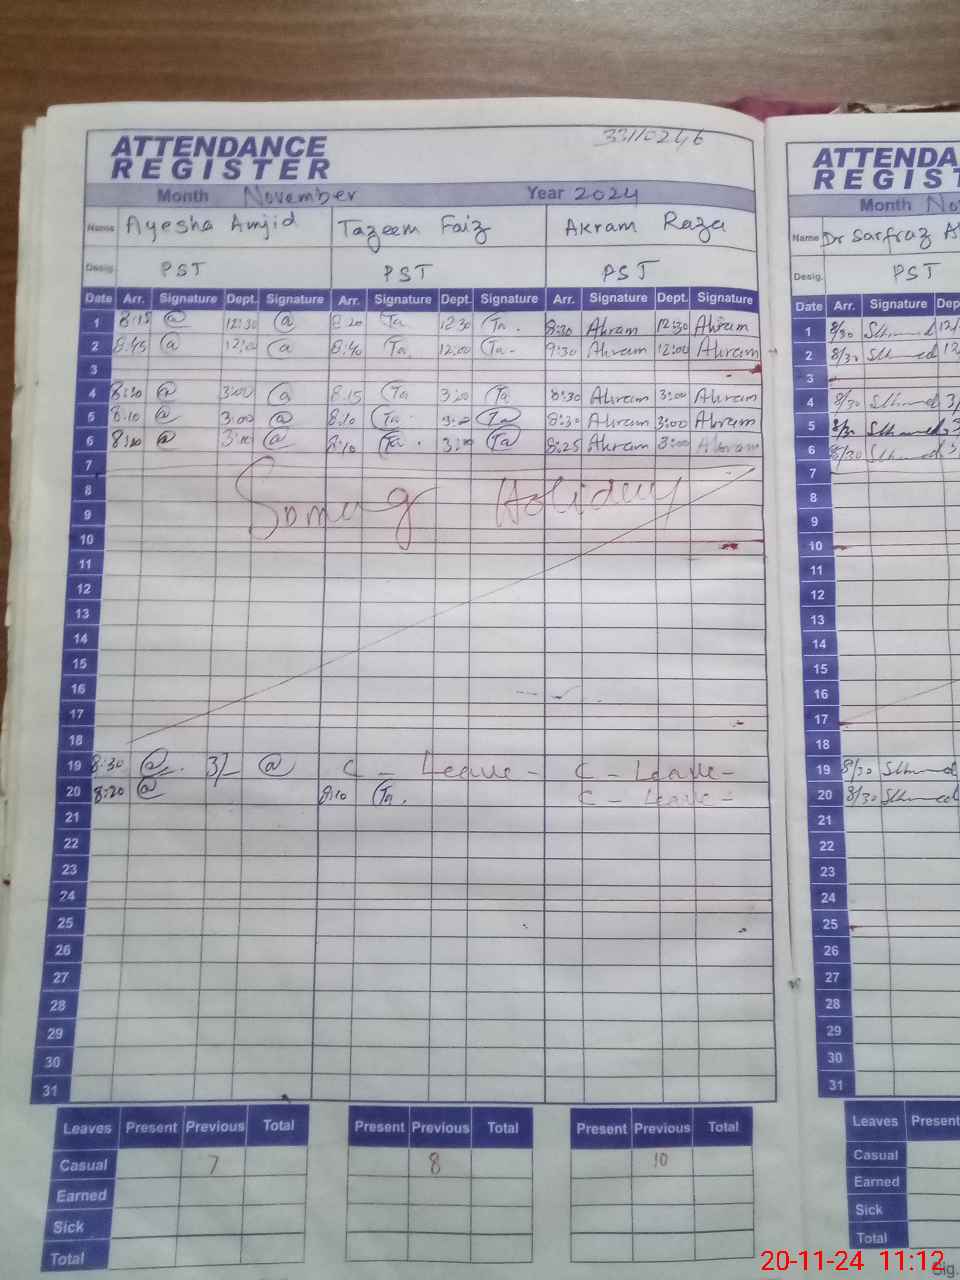 33110246
ATTENDANCE
REGISTER
Month November Year 2024
Name Ayesha Amjid Tazeem Faiz Akram Raza
Desig. PST PST PST
Date Arr. Signature Dept. Signature Arr. Signature Dept. Signature Arr. Signature Dept. Signature
1 8:15 @ 12:30 @ 8:20 Ta 12:30 Ta 8:30 Akram 12:30 Akram
2 8:45 @ 12:00 @ 8:40 Ta 12:00 Ta 9:30 Akram 12:00 Akram
3
4 @ 3:00 @ 8:15 Ta 3:00 Ta 8:30 Akram 3:00 Akram
5 8:10 @ 3:00 @ 8:10 Ta 3:00 Ta 8:30 Akram 3:00 Akram
6 @ 3:00 @ 8:10 Ta 3:00 Ta 8:25 Akram 3:00 Akram
7
8 Somug Holiday
9
10
11
12
13
14
15
16
17
18
19 8:30 @ 3/- @ C - Leave - C - Leave -
20 8:20 @ 8:10 Ta. C - Leave -
21
22
23
24
25
26
27
28
29
30
31
Leaves Present Previous Total Present Previous Total Present Previous Total
Casual 7 8 10
Earned
Sick
Total
ATTENDA
REGIST
Month No
Name Dr Sarfraz A
Desig. PST
Date Arr. Signature Dep
1 8/30 12/
2 8/30 12
3
4 8/30 3/
5 8/30 3
6 8/30 3
7
8
9
10
11
12
13
14
15
16
17
18
19 8/30
20 8/30
21
22
23
24
25
26
27
28
29
30
31
Leaves Present
Casual
Earned
Sick
Total
Sig.
20-11-24 11:12